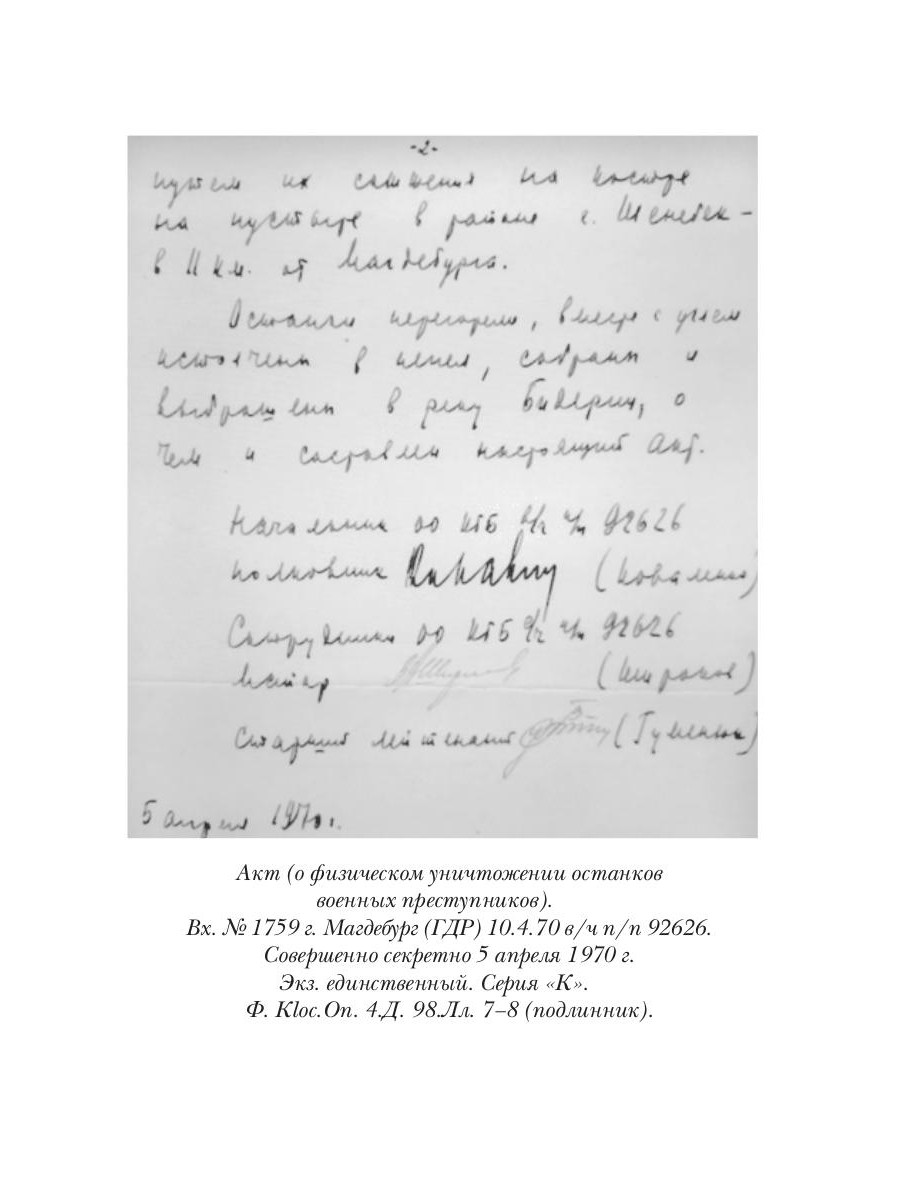 -2-
путем их сожжения на костре
на пустыре в районе г. Шенебек -
в 11 км. от Магдебурга.
Останки перегорели, вместе с углем
истолчены в пепел, собраны и
выброшены в реку Бидериц, о
чем и составлен настоящий акт.
Начальник ОО КГБ в/ч п/п 92626
полковник (Коваленко)
Сотрудники ОО КГБ в/ч п/п 92626
Майор (Широков)
Старший лейтенант (Гуменюк)
5 апреля 1970 г.
Акт (о физическом уничтожении останков
военных преступников).
Вх. № 1759 г. Магдебург (ГДР) 10.4.70 в/ч п/п 92626.
Совершенно секретно 5 апреля 1970 г.
Экз. единственный. Серия «К».
Ф. Kloc.Оп. 4.Д. 98.Лл. 7–8 (подлинник).